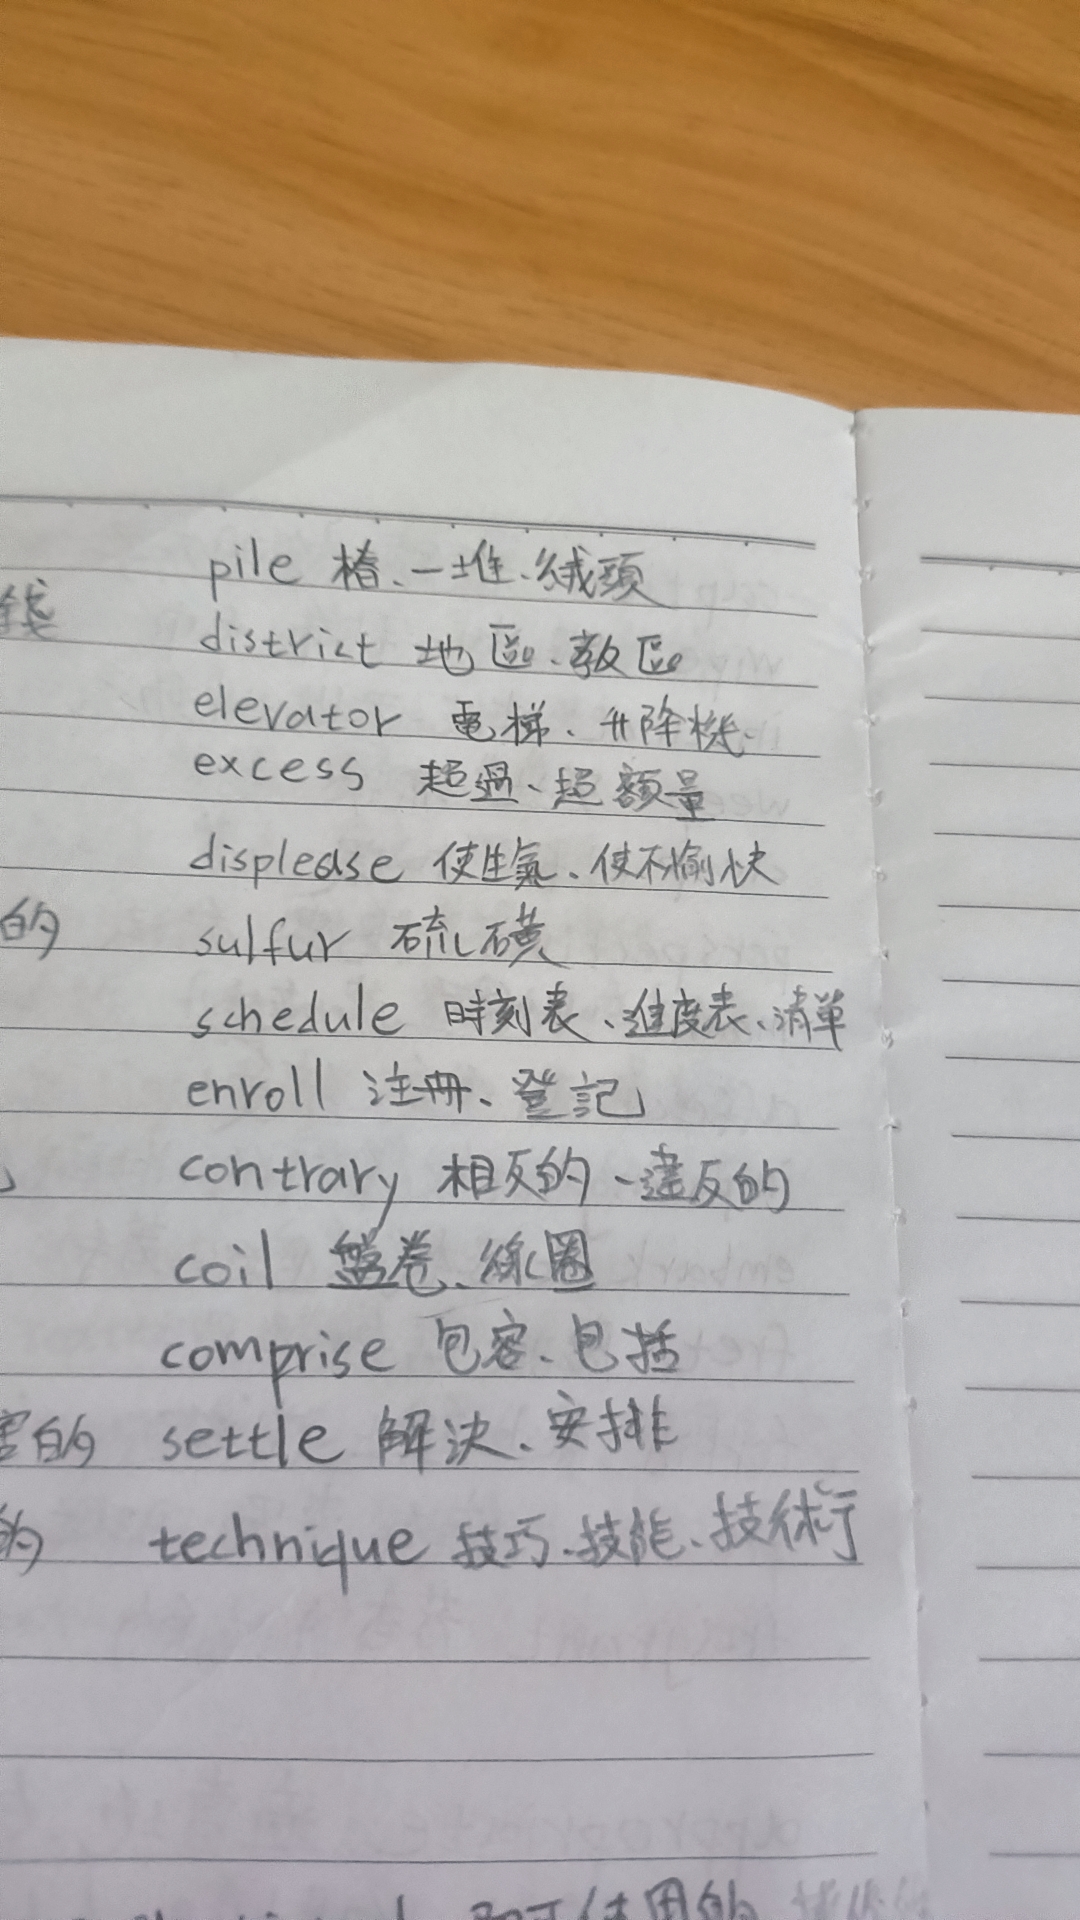 pile 樁、一堆、絨頭
錢 district 地區、教區
elevator 電梯、升降機
excess 超過、超額量
displease 使生氣、使不愉快
的 sulfur 硫磺
schedule 時刻表、進度表、清單
enroll 注冊、登記
contrary 相反的、違反的
coil 盤卷、線圈
comprise 包容、包括
害的 settle 解決、安排
的 technique 技巧、技能、技術
可使用的